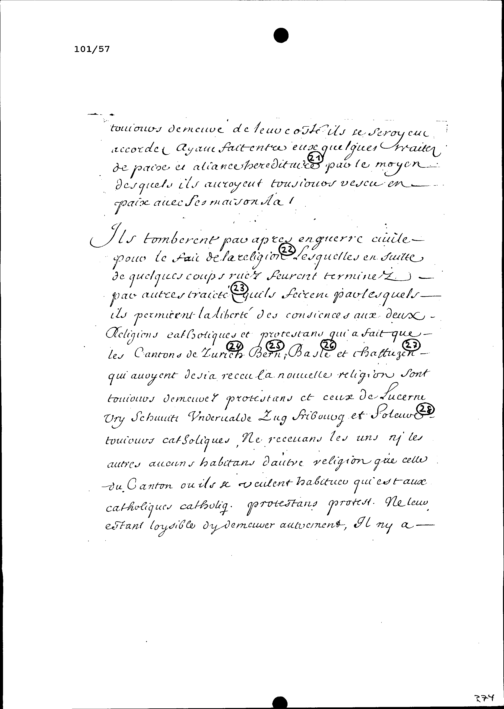 101/57
tousiours demeuré de leur costé ils se seroyent
accordez Ayant fait entre eux quelques traitez
de paix et aliance hereditaire (21) par le moyen
desquels ils auroyent tousiouos vescu en
paix avec
Ils tomberent par apres en guerre ciuile
pour le fait de la religion (22) Lesquelles en suitte
de quelques coups ruez feurent terminez
par autres traicté (23) quils feirent par lesquels
ils permirent la liberté des consiences aux deux
Religions catholiques et protestans qui a fait que
les Cantons de Zurich (24) Bern, (25) Basle (26) et chaffuzen (27)
qui auoyent desia receu la nouuelle religion sont
tousiours demeurez protestans et ceux de Lucerne
Vry Schuuits Vnderualde Zug fribourg et Soleure (28)
tousiours catholiques, Ne receuans les uns nj les
autres aucuns habitans dautre religion que celle
du Canton ou ils se veulent habituer qui est aux
catholiques catholiq. protestans protest. Ne leur
estant loysible dy demeurer autrement, Il ny a
274